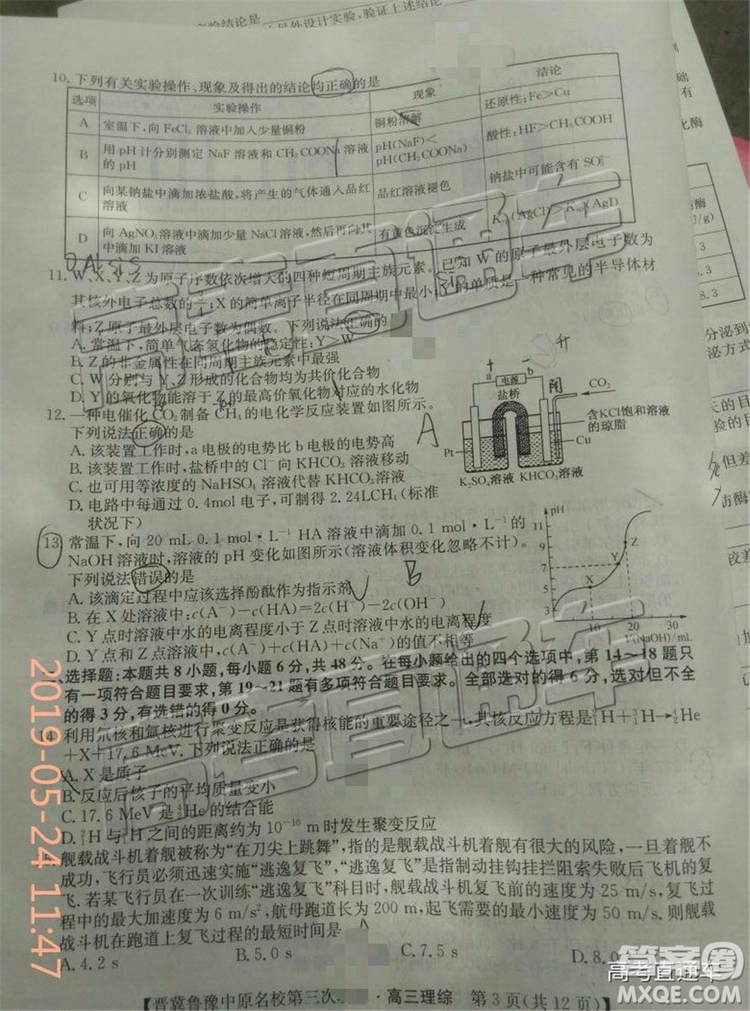 实验结论是
另外设计实验,验证上述结论
10.下列有关实验操作、现象及得出的结论均正确的是
选项 实验操作 现象 结论
A 室温下,向FeCl₃溶液中加入少量铜粉 铜粉溶解 还原性:Fe>Cu
B 用pH计分别测定NaF溶液和CH₃COONa溶液的pH pH(NaF)<pH(CH₃COONa) 酸性:HF>CH₃COOH
C 向某钠盐中滴加浓盐酸,将产生的气体通入品红溶液 品红溶液褪色 钠盐中可能含有
D 向AgNO₃溶液中滴加少量NaCl溶液,然后再向其中滴加KI溶液 有黄色沉淀生成 Ksp(AgCl)>Ksp(AgI)
11.W、X、Y、Z为原子序数依次增大的四种短周期主族元素。已知W的原子最外层电子数为
其核外电子总数的;X的简单离子半径在同周期中最小,Y的单质是一种常见的半导体材
料;Z原子最外层电子数为偶数。下列说法正确的是
A.常温下,简单气态氢化物的稳定性:Y>W
B.Z的非金属性在同周期主族元素中最强
C.W分别与Y、Z形成的化合物均为共价化合物
D.Y的氧化物能溶于Z的最高价氧化物对应的水化物
12.一种电催化CO₂制备CH₄的电化学反应装置如图所示。
下列说法正确的是
A.该装置工作时,a电极的电势比b电极的电势高
B.该装置工作时,盐桥中的Cl⁻向KHCO₃溶液移动
C.也可用等浓度的NaHSO₄溶液代替KHCO₃溶液
D.电路中每通过0.4mol电子,可制得2.24LCH₄(标准
状况下)
a 电源 b
盐桥
CO₂
含KCl饱和溶液
的琼脂
Pt
Cu
K₂SO₄溶液 KHCO₃溶液
A
13.常温下,向20 mL 0.1 mol·L⁻¹ HA溶液中滴加0.1 mol·L⁻¹的
NaOH溶液时,溶液的pH变化如图所示(溶液体积变化忽略不计)。
下列说法错误的是
A.该滴定过程中应该选择酚酞作为指示剂
B.在X处溶液中:c(A⁻)-c(HA)=2c(H⁺)-2c(OH⁻)
C.Y点时溶液中水的电离程度小于Z点时溶液中水的电离程度
D.Y点时,c(A⁻)+c(HA)+c(Na⁺)的值不相等
B
pH
11
9
7
5
3
X
Y
Z
10 20 30
V(NaOH)/mL
、选择题:本题共8小题,每小题6分,共48分。在每小题给出的四个选项中,第14~18题只
有一项符合题目要求,第19~21题有多项符合题目要求。全部选对的得6分,选对但不全
的得3分,有选错的得0分。
14.利用氘核和氚核进行聚变反应是获得核能的重要途径之一,其核反应方程是²₁H+³₁H→⁴₂He
+X+17.6 MeV.下列说法正确的是
A.X是质子
B.反应后核子的平均质量变小
C.17.6 MeV是⁴₂He的结合能
D.²₁H与³₁H之间的距离约为10⁻¹⁰ m时发生聚变反应
舰载战斗机着舰被称为“在刀尖上跳舞”,指的是舰载战斗机着舰有很大的风险,一旦着舰不
成功,飞行员必须迅速实施“逃逸复飞”,“逃逸复飞”是指制动挂钩挂拦阻索失败后飞机的复
飞.若某飞行员在一次训练“逃逸复飞”科目时,舰载战斗机复飞前的速度为25 m/s,复飞过
程中的最大加速度为6 m/s²,航母跑道长为200 m,起飞需要的最小速度为50 m/s.则舰载
战斗机在跑道上复飞过程的最短时间是
A.4.2 s B.5.0 s C.7.5 s D.8.0
【晋冀鲁豫中原名校第三次 ·高三理综 第3页(共12页)】
2019-05-24 11:47
高考直通车
高考直通车
高考直通车
高考直通车
答案圈
MXQE.COM